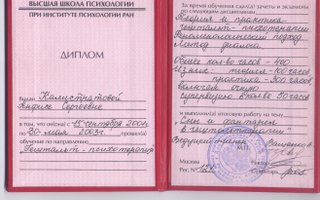 ВЫСШАЯ ШКОЛА ПСИХОЛОГИИ
ПРИ ИНСТИТУТЕ ПСИХОЛОГИИ РАН
ДИПЛОМ
Выдан Калистратовой
Анфисе Сергеевне
в том, что он(она) с 15 сентября 2001г
по 30 мая 2003г. прошел(а)
обучение по направлению
Гештальт - психотерапия
За время обучения сдал(а) зачеты и экзамены
по следующим дисциплинам:
Теория и практика
гештальт - психотерапии
Феноменологический подход
Метод диалога
Общее кол-во часов - 400
Из них: теория - 100 часов
практика - 300 часов
включая очную
супервизию в кол-ве 50 часов
и выполнил(а) итоговую работу на тему
Сны и фантазии
в гештальттерапии
Ведущий тренер
М.П.
Ректор
Москва
Секретарь
Рег. №